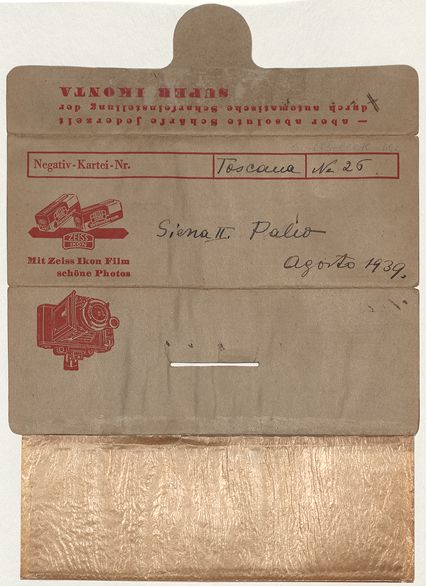 — aber absolute Schärfe jederzeit
durch automatische Scharfeinstellung der
SUPER IKONTA
Negativ-Kartei-Nr. Toscana No 26.
ZEISS
IKON
Siena II. Palio
Mit Zeiss Ikon Film
schöne Photos
Agosto 1939.